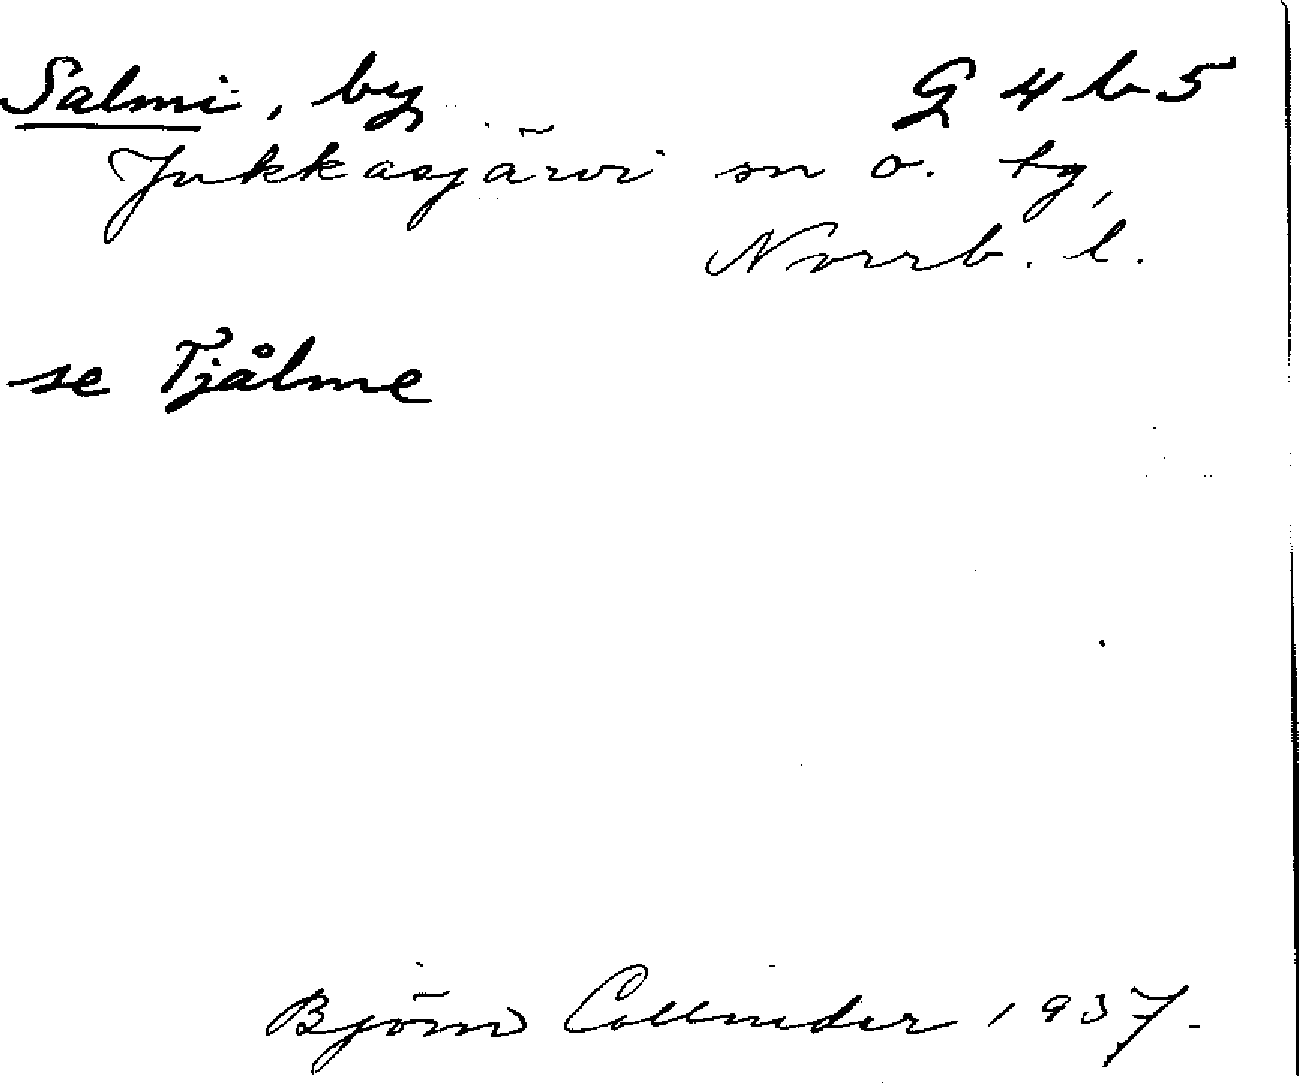 Salmi, by G 4 b 5
Jukkasjärvi sn o. tg,
Norrb. l.
se Tjålme
Björn Collinder 1937.